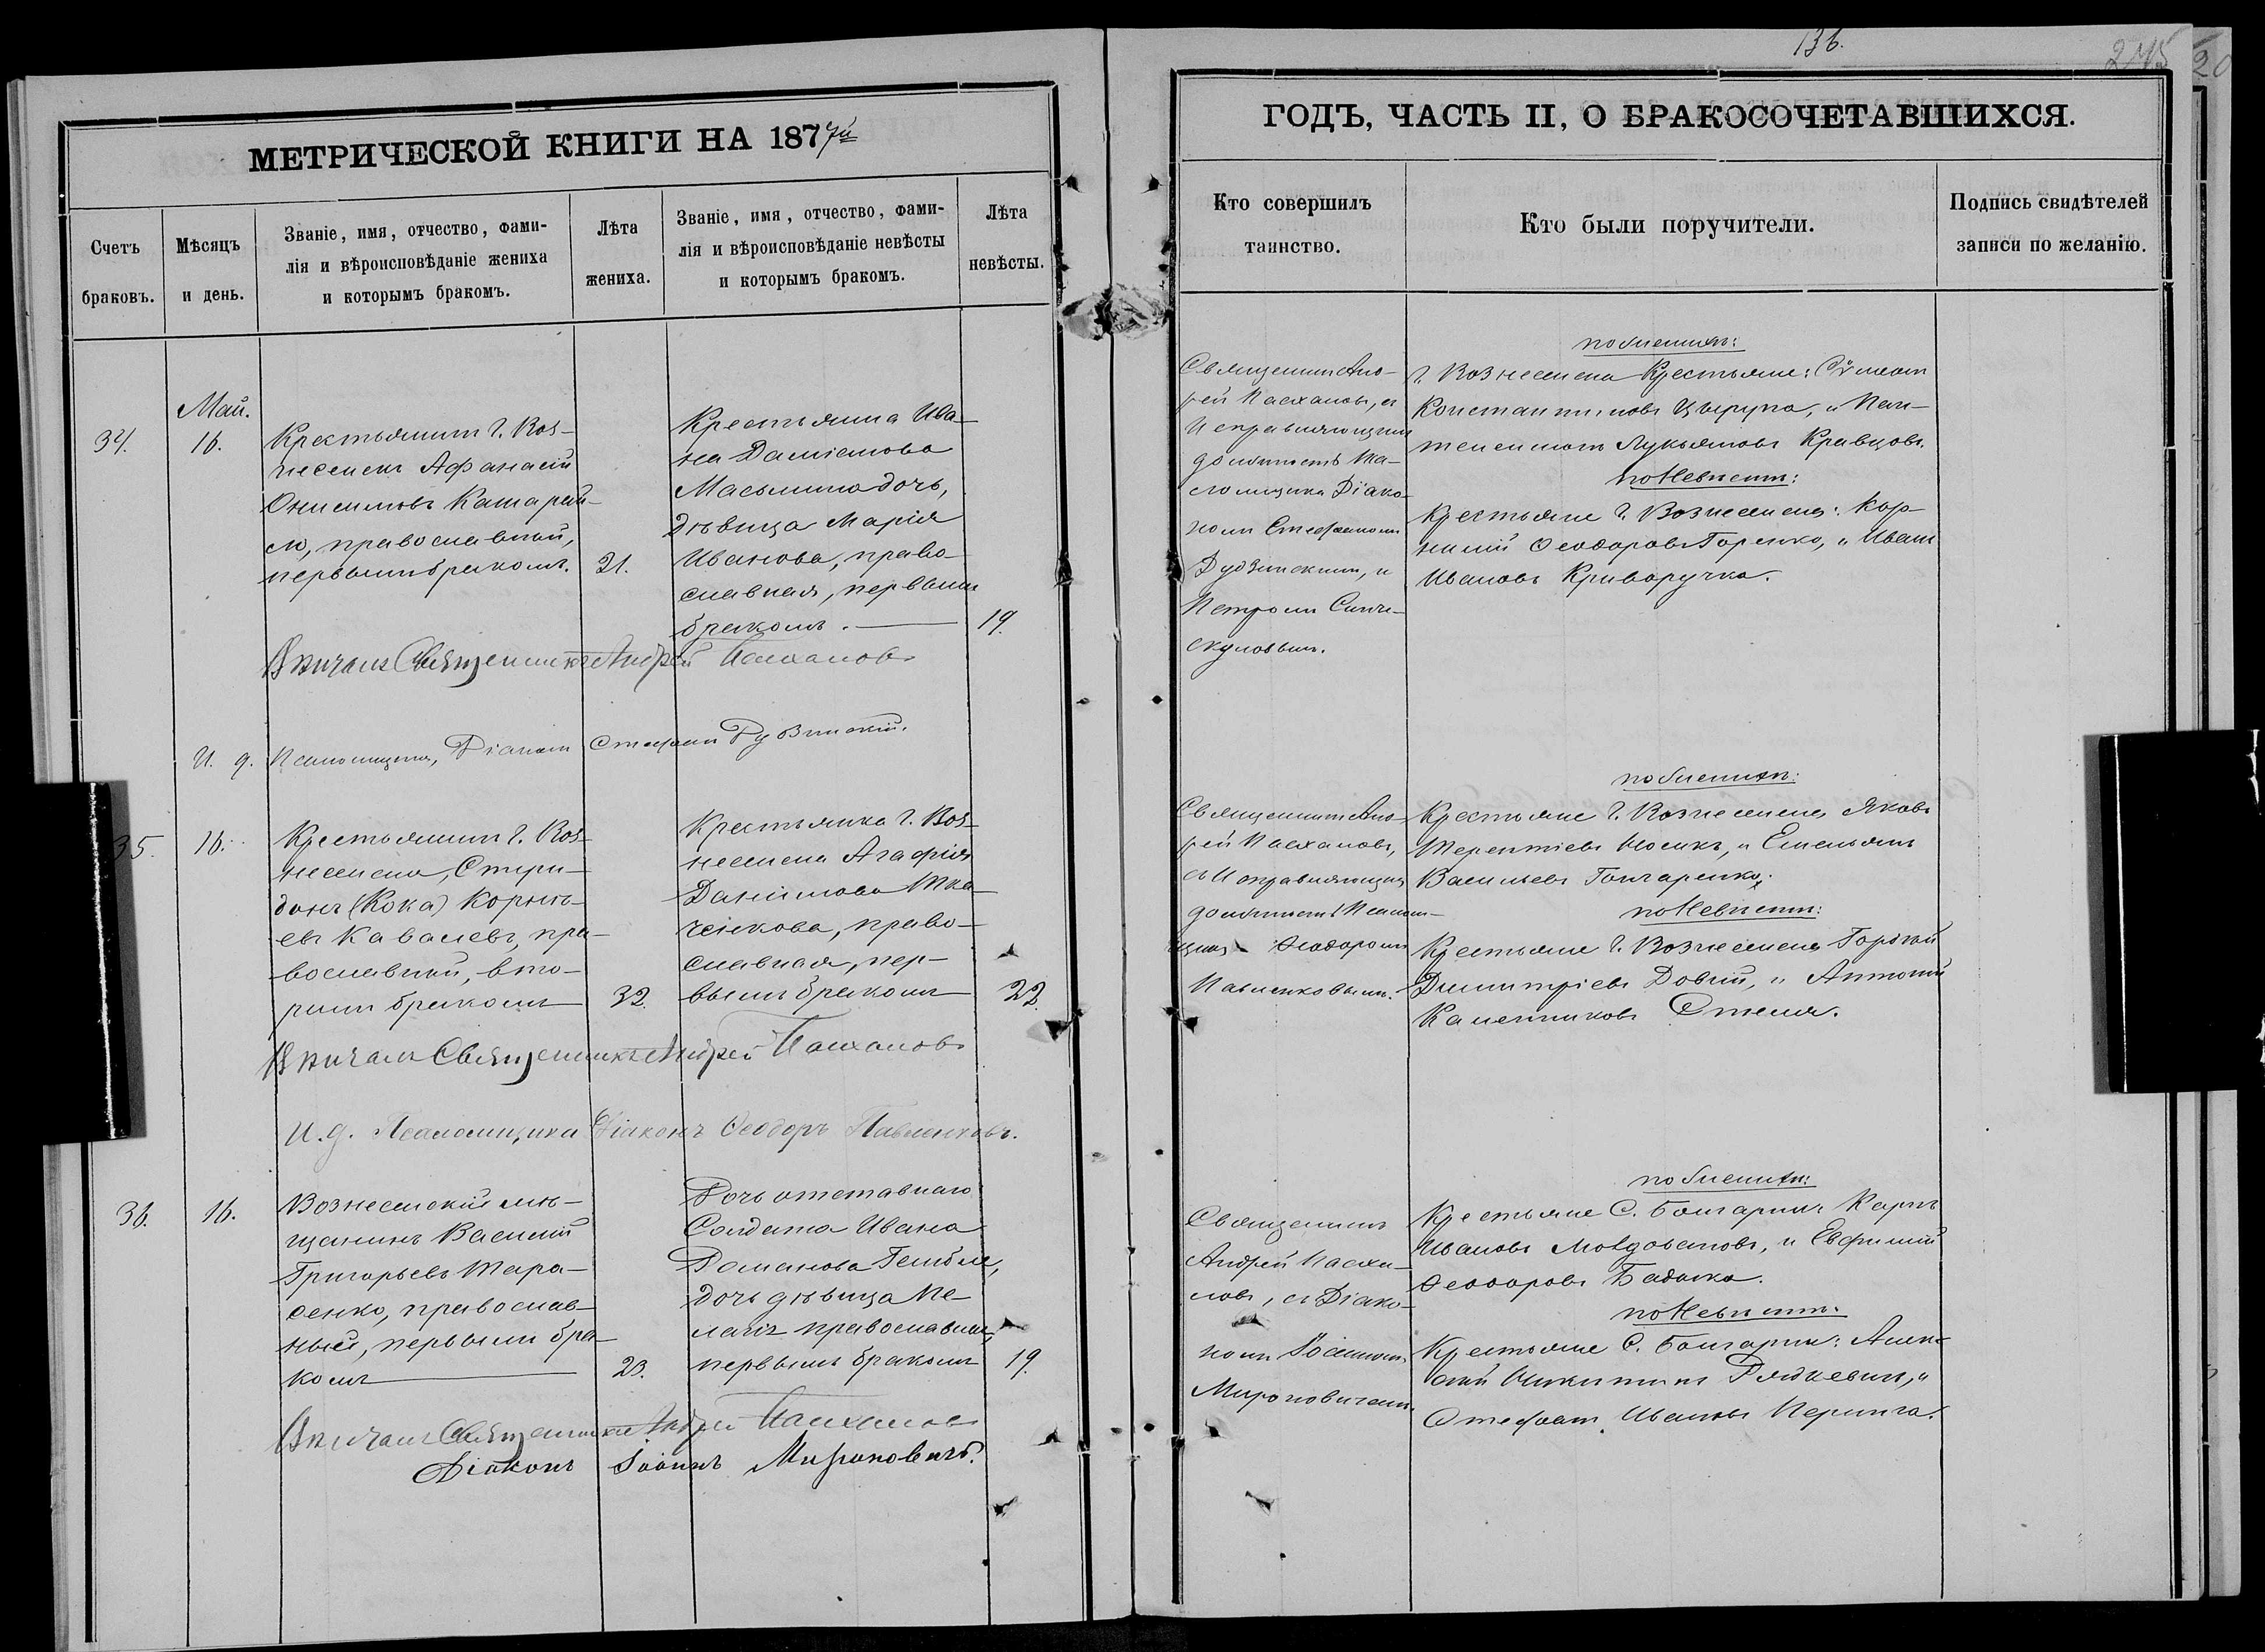 МЕТРИЧЕСКОЙ КНИГИ НА 1877й
Счетъ браковъ.
Мѣсяцъ и день.
Званіе, имя, отчество, фами-
лія и вѣроисповѣданіе жениха
и которымъ бракомъ.
Лѣта жениха.
Званіе, имя, отчество, фами-
лія и вѣроисповѣданіе невѣсты
и которымъ бракомъ.
Лѣта невѣсты.
34.
Май.
16.
Крестьянинъ г. Воз-
несенска Афанасій
Онисимовъ
православный,
первымъ бракомъ.
21.
Крестьянина Ива-
на Даміанова
дочь,
дѣвица Марія
Иванова, право-
славная, первымъ
бракомъ.
19.
Вѣнчалъ Священникъ Андрей Пасхаловъ
И. д. Псаломщика, Діаконъ Стефанъ Дузинскій.
35.
16.
Крестьянинъ г. Воз-
несенска, Спири-
донъ (Кока) Корнѣ-
евъ Ковалевъ, пра-
вославный, вто-
рымъ бракомъ
32.
Крестьянка г. Воз-
несенска Агафія
Даніилова Тка-
ченкова, право-
славная, пер-
вымъ бракомъ
22.
Вѣнчалъ Священникъ Андрей Пасхаловъ
И. д. Псаломщика Діаконъ Ѳеодоръ Павленковъ.
36.
16.
Вознесенскій мѣ-
щанинъ Василій
Григорьевъ Тара-
сенко, православ-
ный, первымъ бра-
комъ
23.
Дочь отставнаго
Солдата Ивана
Романова
дочь дѣвица Пе-
лагія православная,
первымъ бракомъ
19.
Вѣнчалъ Священникъ Андрей Пасхаловъ
Діаконъ Іоаннъ Мироновичъ.
136.
275
20
ГОДЪ, ЧАСТЬ II, О БРАКОСОЧЕТАВШИХСЯ.
Кто совершилъ
таинство.
Кто были поручители.
Подпись свидѣтелей
записи по желанію.
Священникъ Анд-
рей Пасхаловъ, съ
Исправляющимъ
должность Пса-
ломщика Діако-
номъ Стефаномъ
Дузинскимъ, и
Петромъ
по женихѣ:
г. Вознесенска Крестьяне: Сѵмеонъ
Константиновъ Цырупа, и Пан-
телеимонъ Лукьяновъ Кравцовъ.
по Невѣстѣ:
Крестьяне г. Вознесенска: Кор-
нилій Ѳеодоровъ Горенко, и Иванъ
Ивановъ Криворучка.
Священникъ Анд-
рей Пасхаловъ,
съ Исправляющимъ
должность Псалом-
щика Ѳеодоромъ
Павленковымъ.
по женихѣ:
Крестьяне г. Вознесенска Яковъ
Терентіевъ Носикъ, и Емельянъ
Васильевъ Гончаренко.
по Невѣстѣ:
Крестьяне г. Вознесенска Гордѣй
Димитріевъ Довгій, и Антоній
Священникъ
Андрей Пасха-
ловъ, съ Діако-
номъ Іоанномъ
Мироновичемъ.
по женихѣ:
Крестьяне С. Болгарки: Карпъ
Ивановъ Молдовановъ, и Евфимій
Ѳеодоровъ
по Невѣстѣ:
Крестьяне С. Болгарки: Алек-
сѣй Никитинъ и
Стефанъ Ивановъ